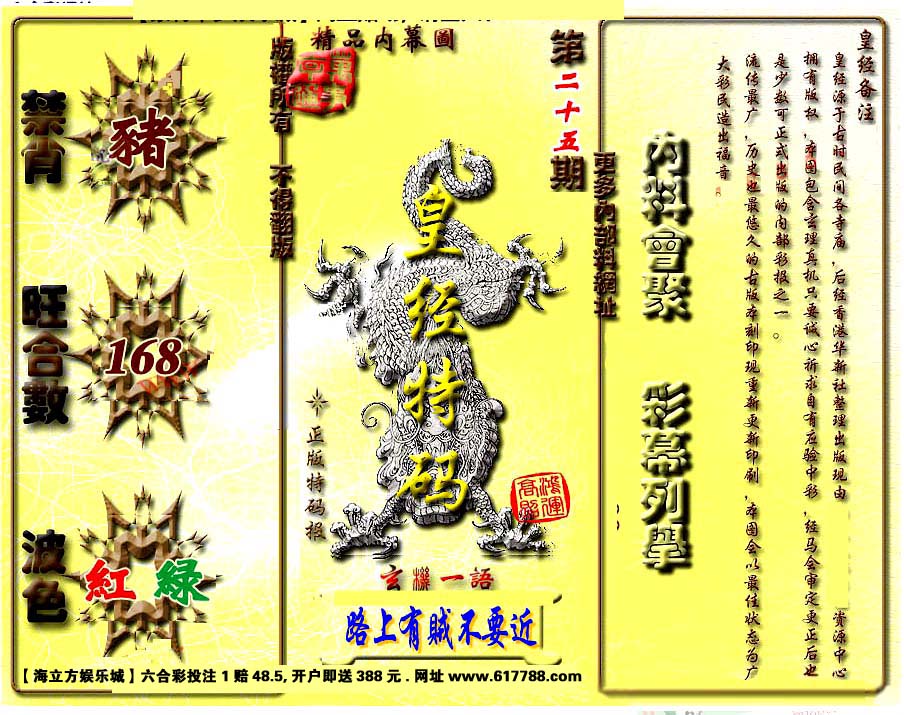 精品内幕圖
第二十五期
版權所有 不得翻版
禁肖
豬
旺合數
168
波色
紅 緑
皇经特码
正版特码报
鴻運高照
玄機一語
路上有賊不要近
更多内部料網址
内料會聚
彩幕列舉
皇经备注
皇经源于古时民间各寺庙,后经香港华新社整理出版现由 资源中心
拥有版权,本图包含玄理真机只要诚心祈求自有应验中彩,经马会审定更正后也
是少数可正式出版的内部彩报之一。
流传最广,历史也最悠久的古版本刻印现重新更新印刷,本图会以最佳状态为广
大彩民造出福音
【海立方娱乐城】六合彩投注1赔48.5,开户即送388元.网址www.617788.com